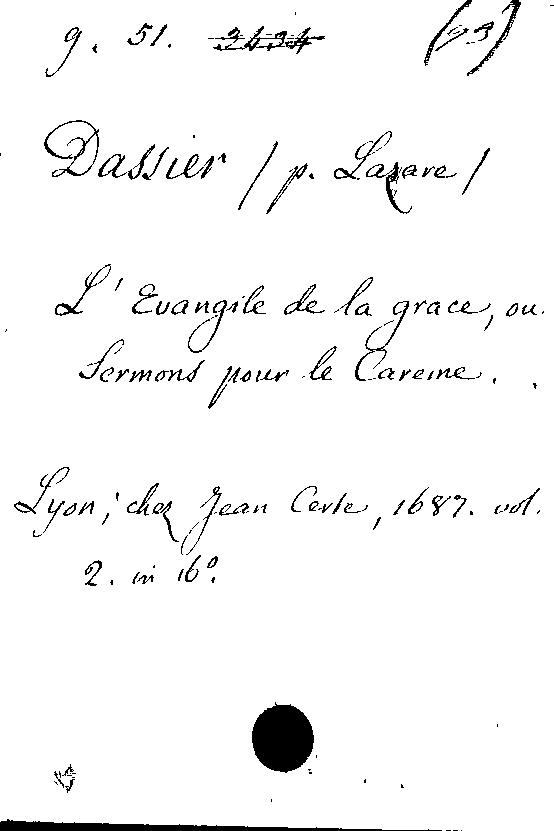 g. 51. 2434 (23)
Dassier / p. Lazare /
L' Evangile de la grace, ou
Sermons pour le Careme.
Lyon; chez Jean Certe, 1687. vol.
2. in 16º.